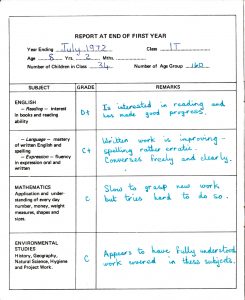 REPORT AT END OF FIRST YEAR
Year Ending July 1972 Class 1T
Age 8 Yrs. 2 Mths.
Number of Children in Class 34 Number of Age Group 160
SUBJECT GRADE REMARKS
ENGLISH
— Reading — interest
in books and reading
ability
D+
Is interested in reading and
has made good progress.
— Language — mastery
of written English and
spelling
— Expression — fluency
in expression oral and
written
C+
Written work is improving -
spelling rather erratic.
Converses freely and clearly.
MATHEMATICS
Application and under-
standing of every day
number, money, weight
measures, shapes and
sizes.
C
Slow to grasp new work
but tries hard to do so.
ENVIRONMENTAL
STUDIES
History, Geography,
Natural Science, Hygiene
and Project Work.
C
Appears to have fully understood
work covered in these subjects.